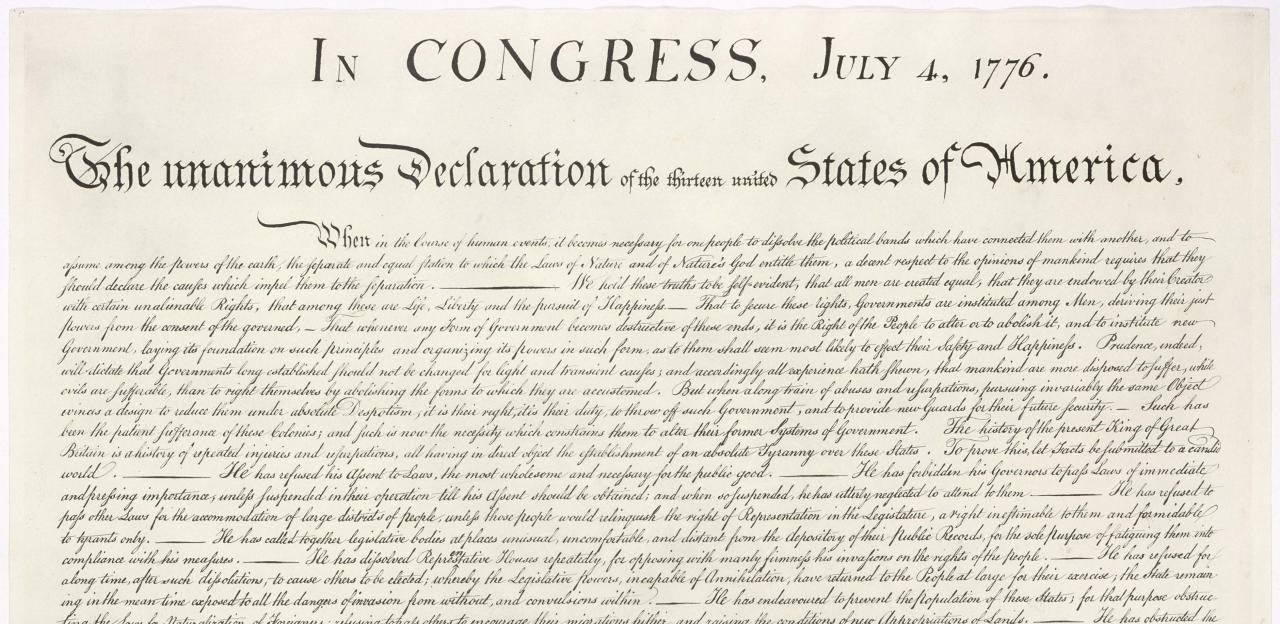 In CONGRESS, July 4, 1776.
The unanimous Declaration of the thirteen united States of America,
When in the Course of human events, it becomes necessary for one people to dissolve the political bands which have connected them with another, and to
assume among the powers of the earth, the separate and equal station to which the Laws of Nature and of Nature's God entitle them, a decent respect to the opinions of mankind requires that they
should declare the causes which impel them to the separation. ——— We hold these truths to be self-evident, that all men are created equal, that they are endowed by their Creator
with certain unalienable Rights, that among these are Life, Liberty and the pursuit of Happiness.— That to secure these rights, Governments are instituted among Men, deriving their just
powers from the consent of the governed, — That whenever any Form of Government becomes destructive of these ends, it is the Right of the People to alter or to abolish it, and to institute new
Government, laying its foundation on such principles and organizing its powers in such form, as to them shall seem most likely to effect their Safety and Happiness. Prudence, indeed,
will dictate that Governments long established should not be changed for light and transient causes; and accordingly all experience hath shewn, that mankind are more disposed to suffer, while
evils are sufferable, than to right themselves by abolishing the forms to which they are accustomed. But when a long train of abuses and usurpations, pursuing invariably the same Object
evinces a design to reduce them under absolute Despotism, it is their right, it is their duty, to throw off such Government, and to provide new Guards for their future security.— Such has
been the patient sufferance of these Colonies; and such is now the necessity which constrains them to alter their former Systems of Government. The history of the present King of Great
Britain is a history of repeated injuries and usurpations, all having in direct object the establishment of an absolute Tyranny over these States. To prove this, let Facts be submitted to a candid
world. ——— He has refused his Assent to Laws, the most wholesome and necessary for the public good. ——— He has forbidden his Governors to pass Laws of immediate
and pressing importance, unless suspended in their operation till his Assent should be obtained; and when so suspended, he has utterly neglected to attend to them. ——— He has refused to
pass other Laws for the accommodation of large districts of people, unless those people would relinquish the right of Representation in the Legislature, a right inestimable to them and formidable
to tyrants only. ——— He has called together legislative bodies at places unusual, uncomfortable, and distant from the depository of their public Records, for the sole purpose of fatiguing them into
compliance with his measures. ——— He has dissolved Representative Houses repeatedly, for opposing with manly firmness his invasions on the rights of the people. ——— He has refused for
a long time, after such dissolutions, to cause others to be elected; whereby the Legislative powers, incapable of Annihilation, have returned to the People at large for their exercise; the State remain
ing in the mean time exposed to all the dangers of invasion from without, and convulsions within. ——— He has endeavoured to prevent the population of these States; for that purpose obstruc
ting the Laws for Naturalization of Foreigners; refusing to pass others to encourage their migrations hither, and raising the conditions of new Appropriations of Lands. ——— He has obstructed the